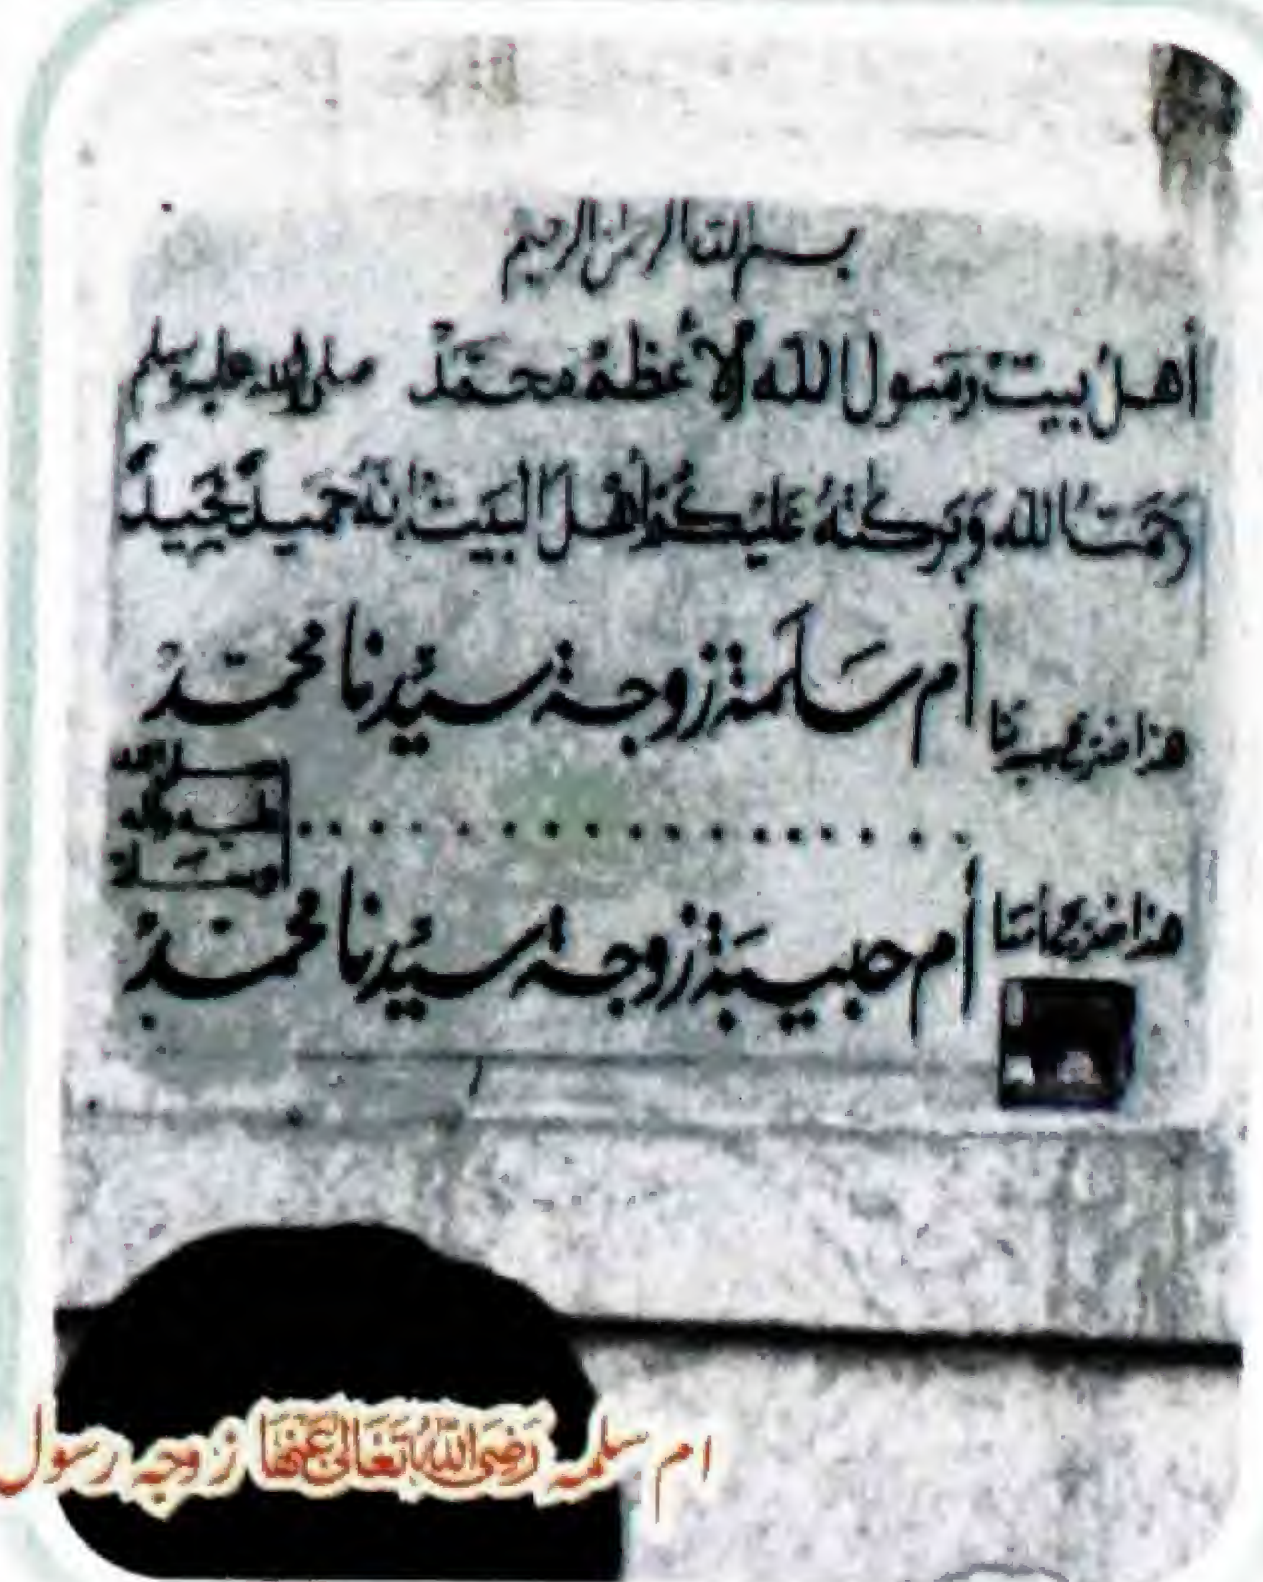 بسم الله الرحمن الرحيم
أهل بيت رسول الله الأعظم محمد صلى الله عليه وسلم
رحمت الله وبركته عليكم أهل البيت إنه حميد مجيد
أم سلمة زوجة سيدنا محمد
هذا ضريح
صلى الله
عليه وآله
وسلم
هذا ضريح
أم حبيبة زوجة سيدنا محمد
ام سلمہ رضی اللہ تعالیٰ عنھا زوجہ رسول